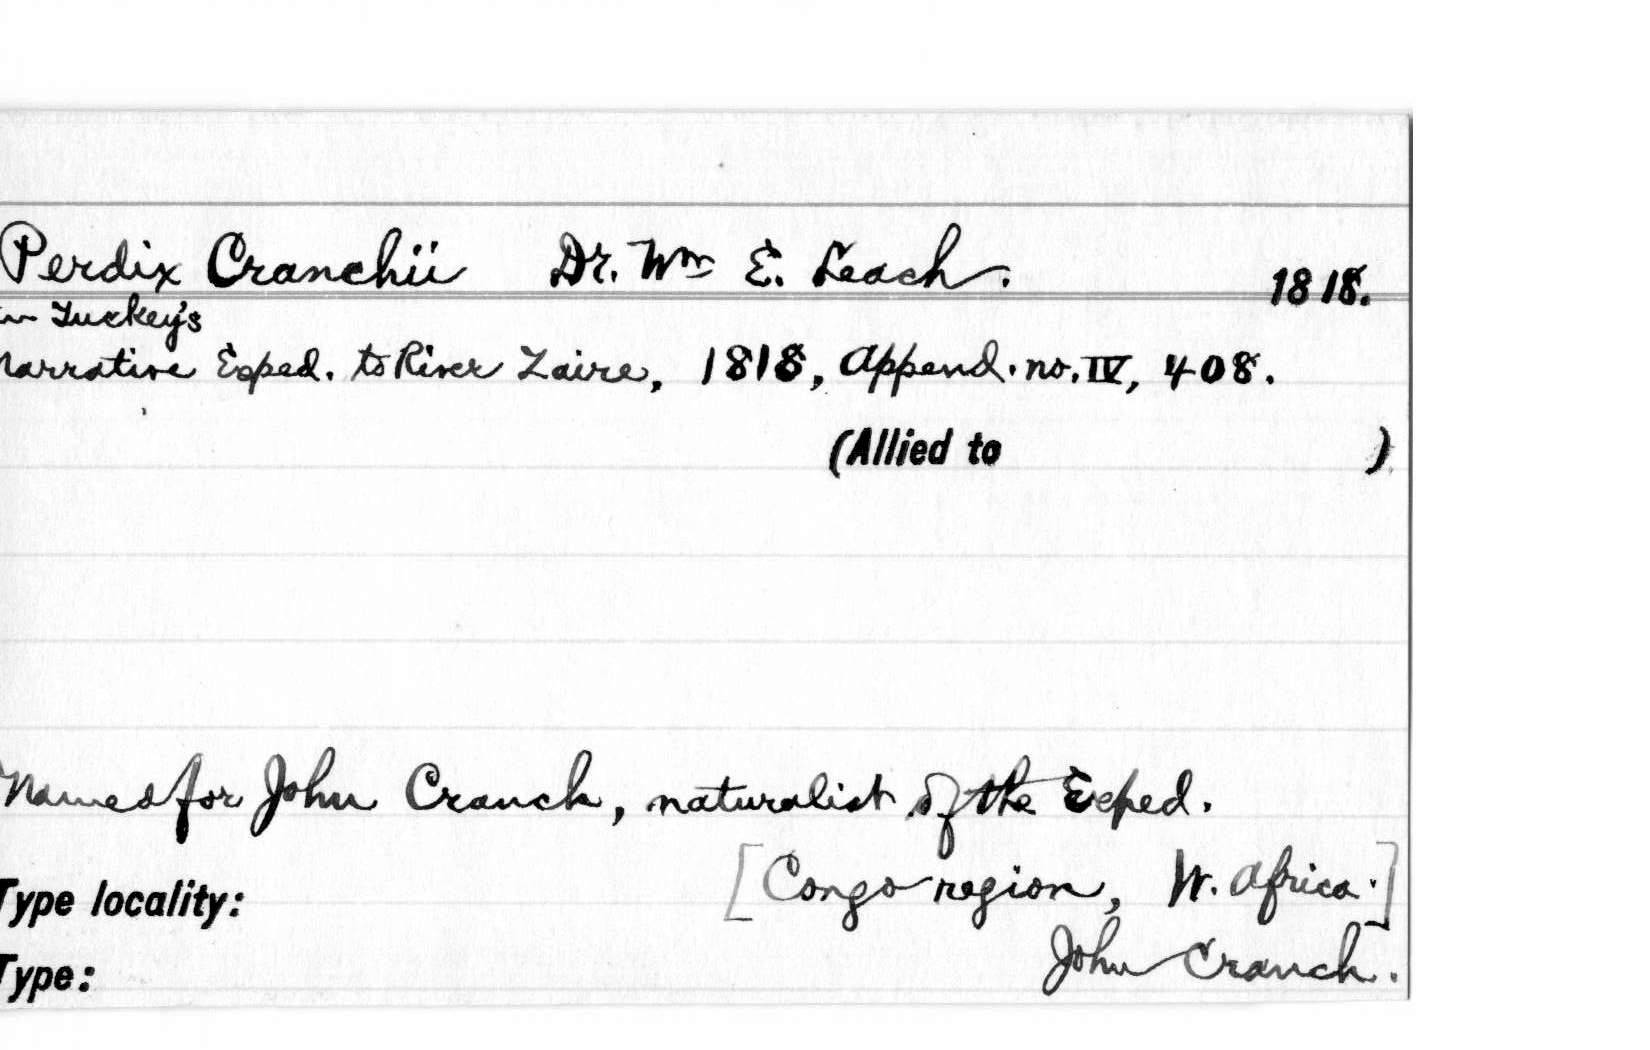 Perdix Cranchii Dr. Wm E. Leach. 1818.
in Tuckey's
Narrative Exped. to River Zaire, 1818, Append. no. IV, 408.
(Allied to )
Named for John Cranch, naturalist of the Exped.
[Congo region, W. Africa.]
Type locality:
John Cranch.
Type: